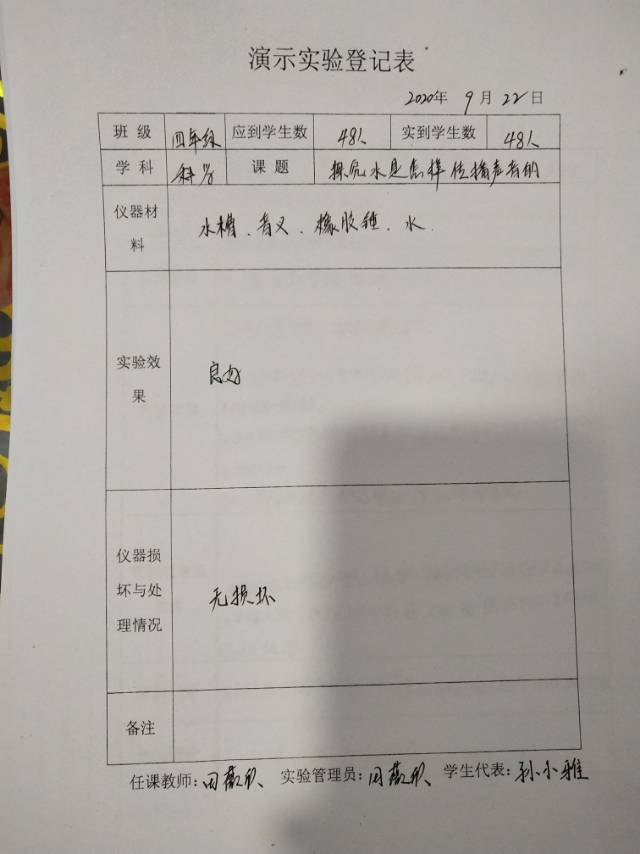 演示实验登记表
2020年 9月 22日
班级 四年级 应到学生数 48人 实到学生数 48人
学科 科学 课题 探究水是怎样传播声音的
仪器材料 水槽、音叉、橡胶锤、水
实验效果 良好
仪器损坏与处理情况 无损坏
备注
任课教师: 实验管理员: 学生代表:孙小雅